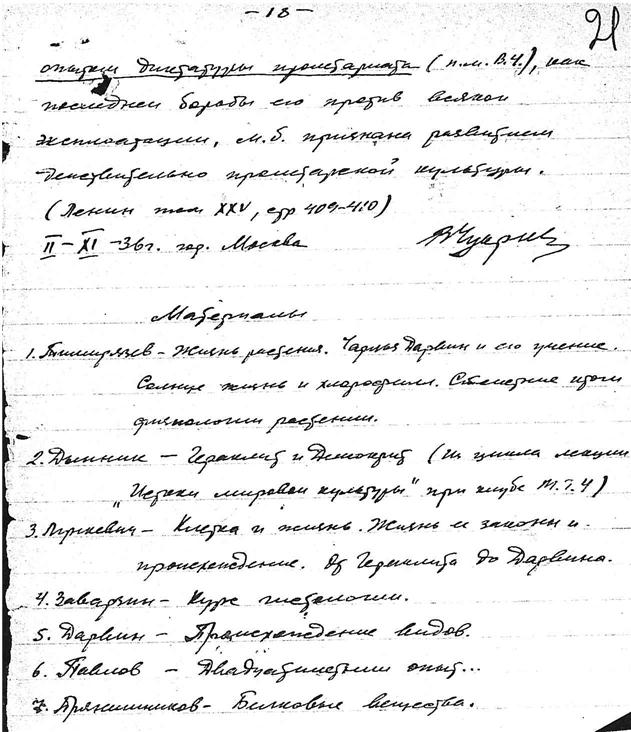 - 18 -
21
опытом диктатуры пролетариата (п.м. В.Ч.), как
последней борьбы его против всякой
эксплоатации, м.б. признана развитием
действительно пролетарской культуры.
(Ленин том XXV, стр 409-410)
II - XI - 36г. гор. Москва
Материалы
1. Тимирязев - Жизнь растения. Чарльз Дарвин и его учение.
Солнце жизнь и хлорофилл. Столетние итоги
физиологии растений.
2. Дынник - Гераклит и Демокрит (из цикла лекции
"Истоки мировой культуры" при клубе М.Г.У)
3. Лункевич - Клетка и жизнь. Жизнь ее законы и
происхождение. От Гераклита до Дарвина.
4. Заварзин - Курс гистологии.
5. Дарвин - Происхождение видов.
6. Павлов - Двадцатилетний опыт...
7. Прянишников - Белковые вещества.